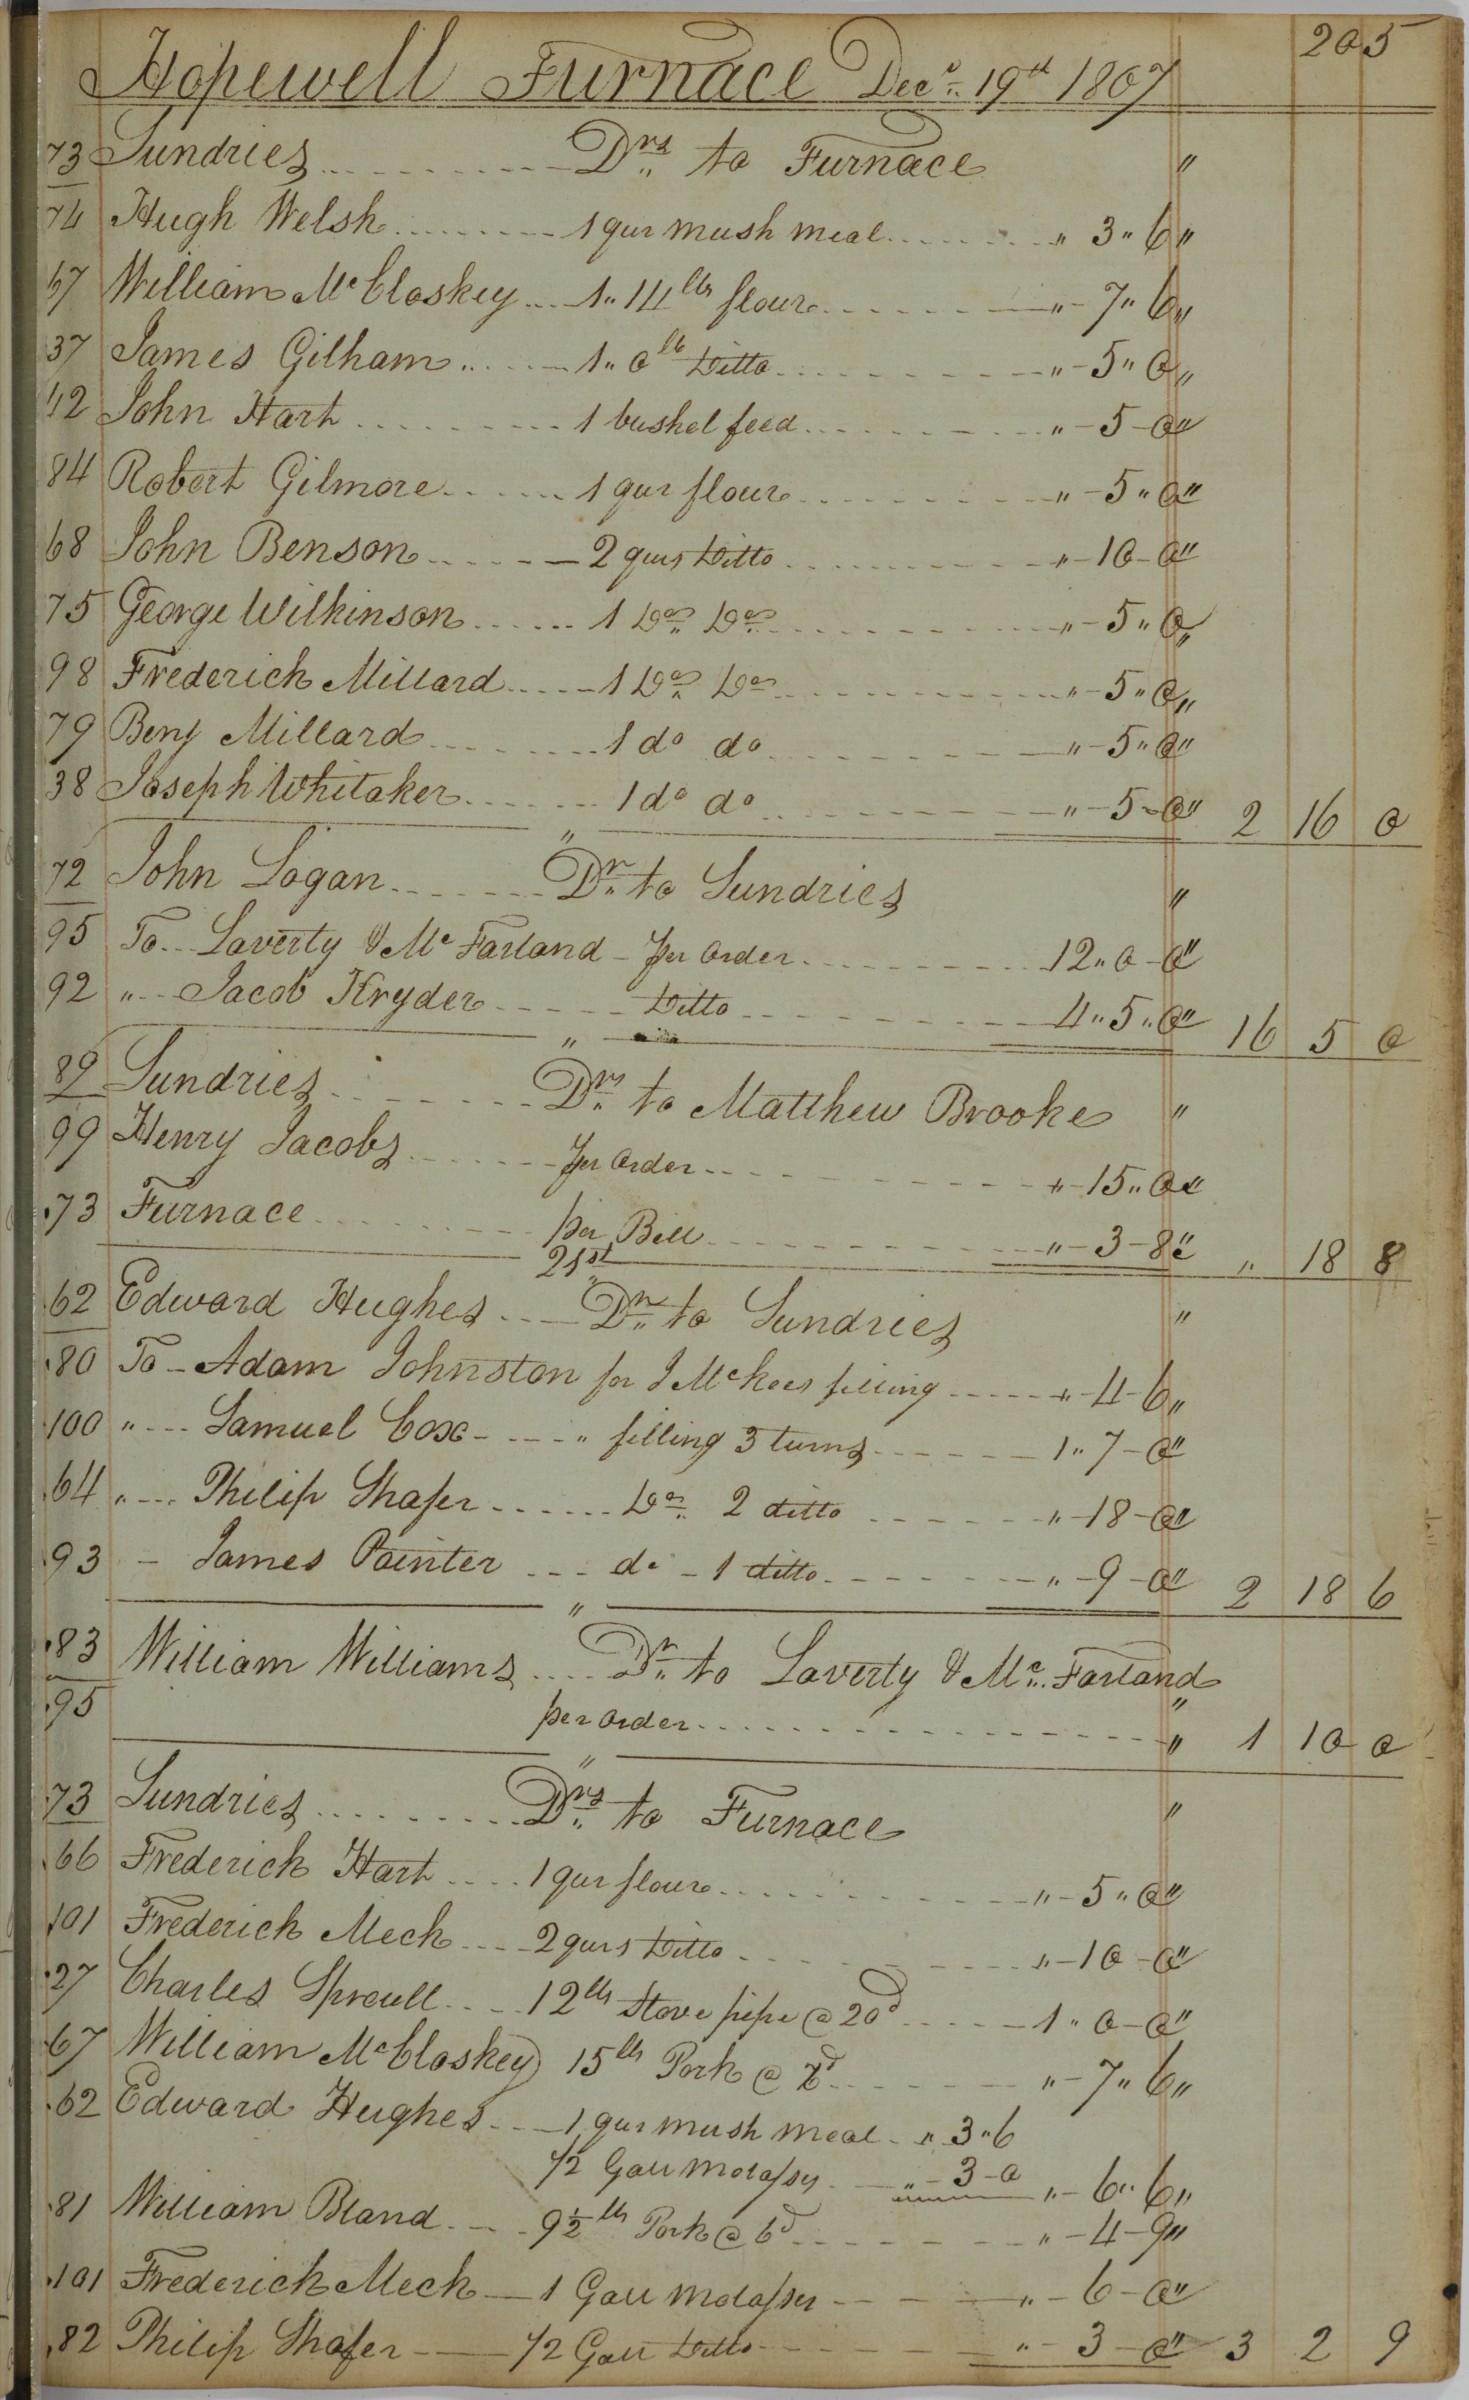 205
Hopewell Furnace Decr 19th 1807
73 Sundries Drs to Furnace "
74 Hugh Welsh 1 qur mush meal " 3 " 6 "
67 William McCloskey 1 " 14 lbs flour " 7 " 6 "
37 James Gilham 1 " 0 lb Ditto " 5 " 0 "
42 John Hart 1 bushel feed " 5 - 0 "
84 Robert Gilmore 1 qur flour " 5 " 0 "
68 John Benson 2 qurs Ditto " 10 - 0 "
75 George Wilkinson 1 Do Do " 5 " 0 "
98 Frederick Millard 1 Do Do " 5 " 0 "
79 Benj Millard 1 do do " 5 " 0 "
38 Joseph Whitaker 1 do do " 5 - 0 " 2 16 0
"
72 John Logan Dr to Sundries "
95 To Laverty & McFarland - per Order 12 " 0 - 0 "
92 " Jacob Kryder Ditto 4 " 5 " 0 " 16 5 0
"
89 Sundries Drs to Matthew Brooke "
99 Henry Jacobs per Order " 15 " 0 "
73 Furnace per Bill " 3 - 8 " " 18 8
21st
62 Edward Hughes Dr to Sundries "
80 To - Adam Johnston for J McKees filling " 4 - 6 "
100 " Samuel Cox - " filling 3 turns 1 " 7 - 0 "
64 " Philip Shafer Do 2 ditto " 18 - 0 "
93 - James Painter do - 1 ditto " 9 - 0 " 2 18 6
"
83 William Williams Dr to Laverty & McFarland "
95 per Order " 1 10 0
"
73 Sundries Drs to Furnace "
66 Frederick Hart 1 qur flour " 5 " 0 "
101 Frederick Mech 2 qurs Ditto " 10 - 0 "
27 Charles Sproull 12 lbs Stove pipe @ 20d 1 " 0 - 0 "
67 William McCloskey 15 lbs Pork @ " 7 " 6 "
62 Edward Hughes 1 qur mush meal " 3 " 6
1/2 Gall molasses " 3 - 0 " 6 " 6 "
81 William Bland 9 1/2 lbs Pork @ 6d " 4 - 9 "
101 Frederick Mech 1 Gall molasses " 6 - 0 "
82 Philip Shafer 1/2 Gall Ditto " 3 - 0 " 3 2 9